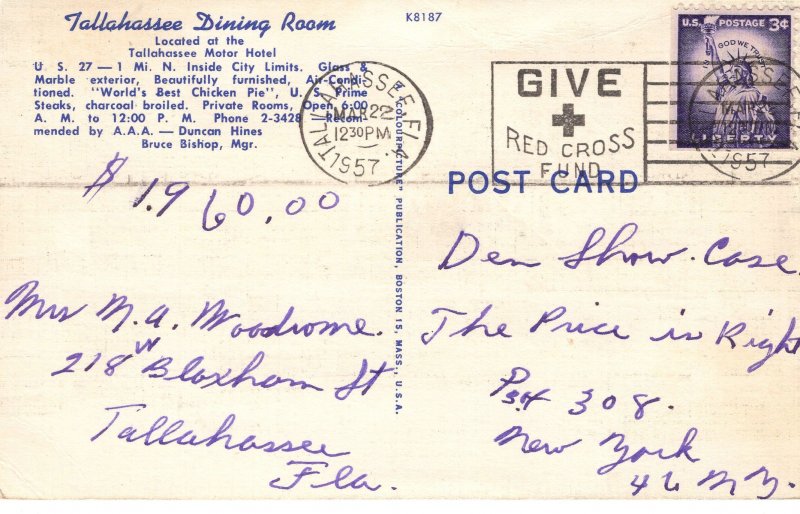 Tallahassee Dining Room
Located at the
Tallahassee Motor Hotel
U. S. 27 — 1 Mi. N. Inside City Limits. Glass &
Marble exterior, Beautifully furnished, Air-Condi-
tioned. "World's Best Chicken Pie", U. S. Prime
Steaks, charcoal broiled. Private Rooms, Open 6:00
A. M. to 12:00 P. M. Phone 2-3428 Recom-
mended by A.A.A. — Duncan Hines
Bruce Bishop, Mgr.
K8187
TALLAHASSEE, FLA.
MAR 22
1230 PM
1957
GIVE
RED CROSS
FUND
U.S. POSTAGE 3¢
IN GOD WE TRUST
LIBERTY
1957
POST CARD
"COLOURPICTURE" PUBLICATION, BOSTON 15, MASS., U.S.A.
$1.960.00
Mrs M.A. Woodrome.
218 W Bloxham St
Tallahassee
Fla.
Den Show. Case.
The Price is Right
308.
New York
46